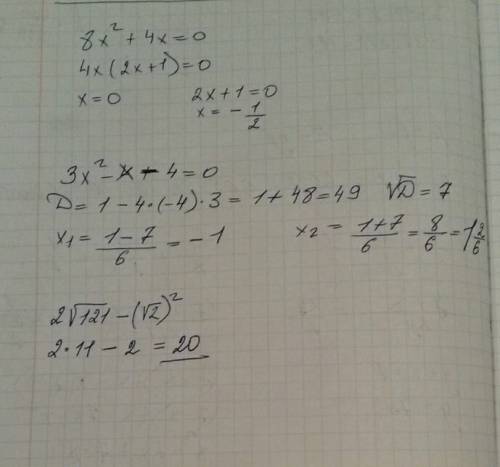 8x² + 4x = 0
4x(2x+1) = 0
x = 0 2x + 1 = 0
x = -1/2
3x² - x - 4 = 0
D = 1 - 4·(-4)·3 = 1 + 48 = 49 √D = 7
x₁ = (1-7)/6 = -1 x₂ = (1+7)/6 = 8/6 = 1 2/6
2√121 - (√2)²
2·11 - 2 = 20